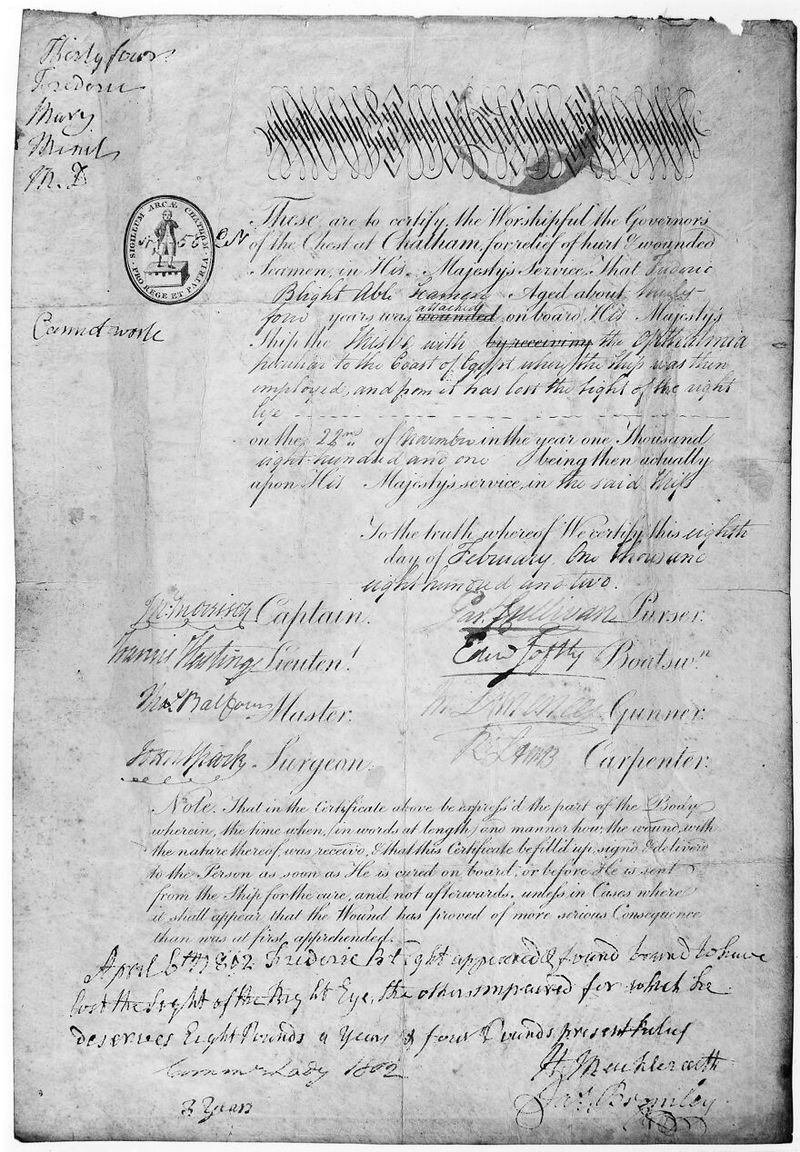 Thirty four
Frederic
Mary
M. D
SIGILLUM ARCÆ CHATHAM
PRO REGE ET PATRIA
56
Cannot work
These are to certify the Worshipful the Governors
of the Chest at Chatham, for relief of hurt & wounded
Seamen, in His Majesty's Service, That Frederic
Blight Able Seamen Aged about thirty
attacked
four years was wounded on board His Majesty's
Ship the Thisbe with by receiving the Opthalmia
peculiar to the Coast of Egypt where the ship was then
employed, and from it has lost the Sight of the right
Eye
on the 22nd of November in the year one Thousand
eight hundred and one being then actually
upon His Majesty's service, in the said Ship
To the truth whereof We certify this eighth
day of February One thousand
eight hundred and two.
Captain. Purser.
Lieutent. Boatswn.
Thos. Balfour Master. Gunner.
Surgeon. R. Lamb Carpenter.
Note. That in the Certificate above be express'd the part of the Body
wherein, the time when, (in words at length) and manner how, the wound, with
the nature thereof, was receiv'd, & that this Certificate be fill'd up, sign'd & deliver'd
to the Person as soon as He is cured on board, or before He is sent
from the Ship for the cure, and not afterwards, unless in Cases where
it shall appear that the Wound has proved of more serious Consequence
than was at first apprehended.
April 6th 1802 Frederic Blight appeared & found to have
lost the Sight of the Right Eye, the other impaired for which he
deserves Eight Pounds a Year & four Pounds present Relief
Lady 1802
3 Years
Jas. Bromley